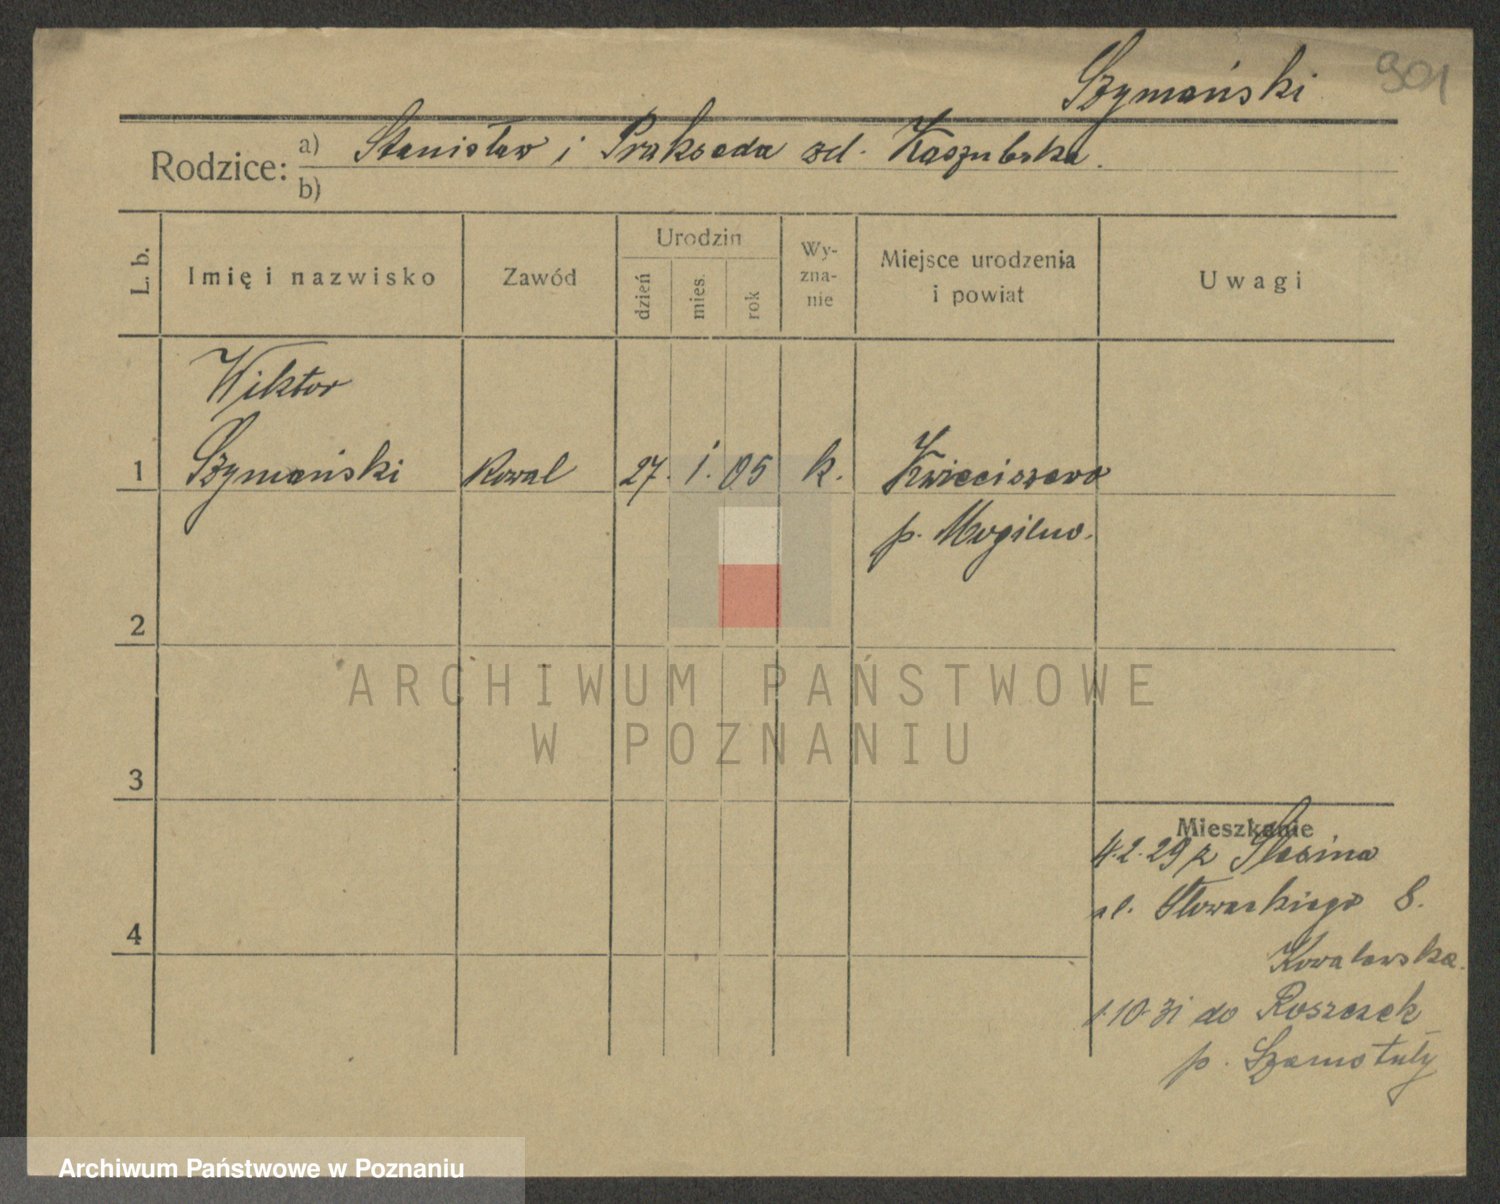 Szymański 901
Rodzice: a) Stanisław i Prakseda zd. Kaszubska.
b)
L. b. Imię i nazwisko Zawód Urodzin dzień mies. rok Wy-zna-nie Miejsce urodzenia i powiat Uwagi
Wiktor
1 Szymański Kowal 27. I. 05 k. Kwieciszewo
p. Mogilno.
2
ARCHIWUM PAŃSTWOWE
W POZNANIU
3
Mieszkanie
4.2.29 z Ślesina
ul. Słowackiego 8.
4
Kowalewska.
1.10.31 do Roszczek
p. Szamotuły
Archiwum Państwowe w Poznaniu